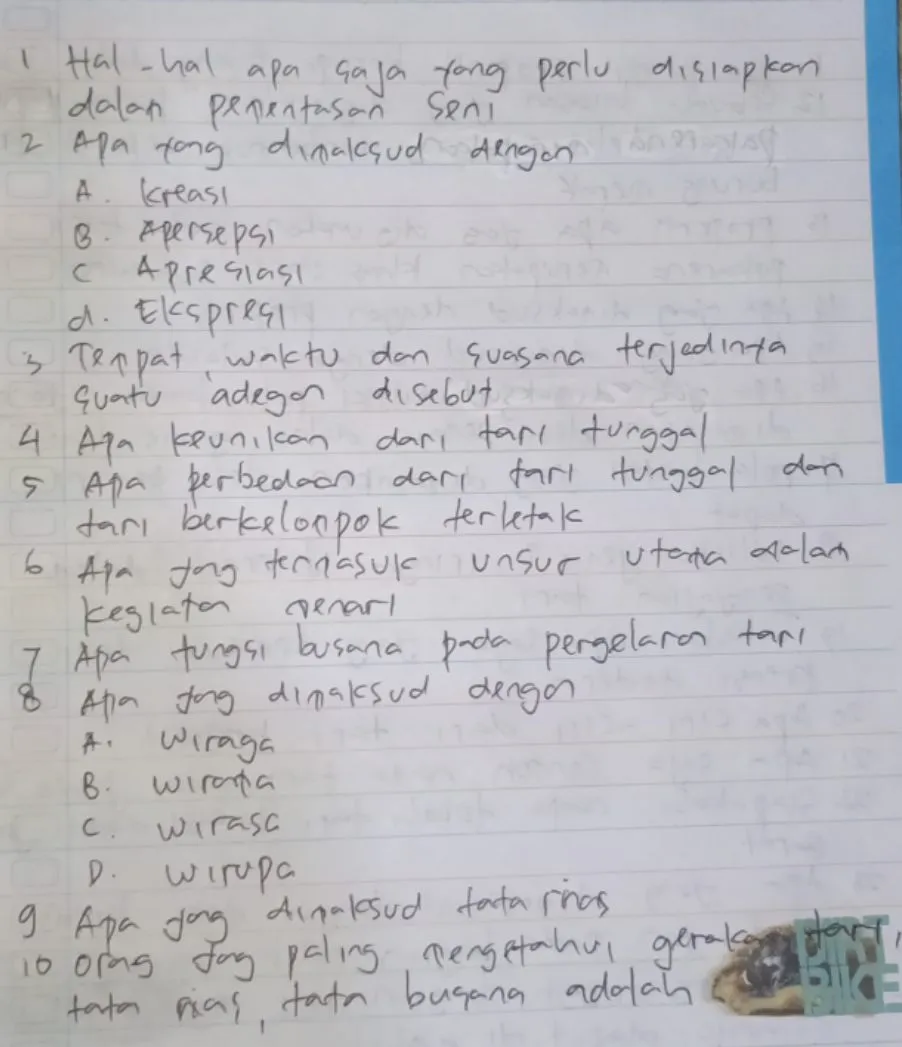 1 Hal-hal apa saja yang perlu disiapkan
dalam pementasan seni
2 Apa yang dimaksud dengan
A. kreasi
B. Apersepsi
C Apresiasi
d. Ekspresi
3 Tempat, waktu dan suasana terjadinya
suatu adegan disebut
4 Apa keunikan dari tari tunggal
5 Apa perbedaan dari tari tunggal dan
tari berkelompok terletak
6 Apa yang termasuk unsur utama dalam
kegiatan menari
7 Apa fungsi busana pada pergelaran tari
8 Apa yang dimaksud dengan
A. wiraga
B. wirama
C. wirasa
D. wirupa
9 Apa yang dimaksud tata rias
10 orang yang paling mengetahui gerakan tari,
tata rias, tata busana adalah